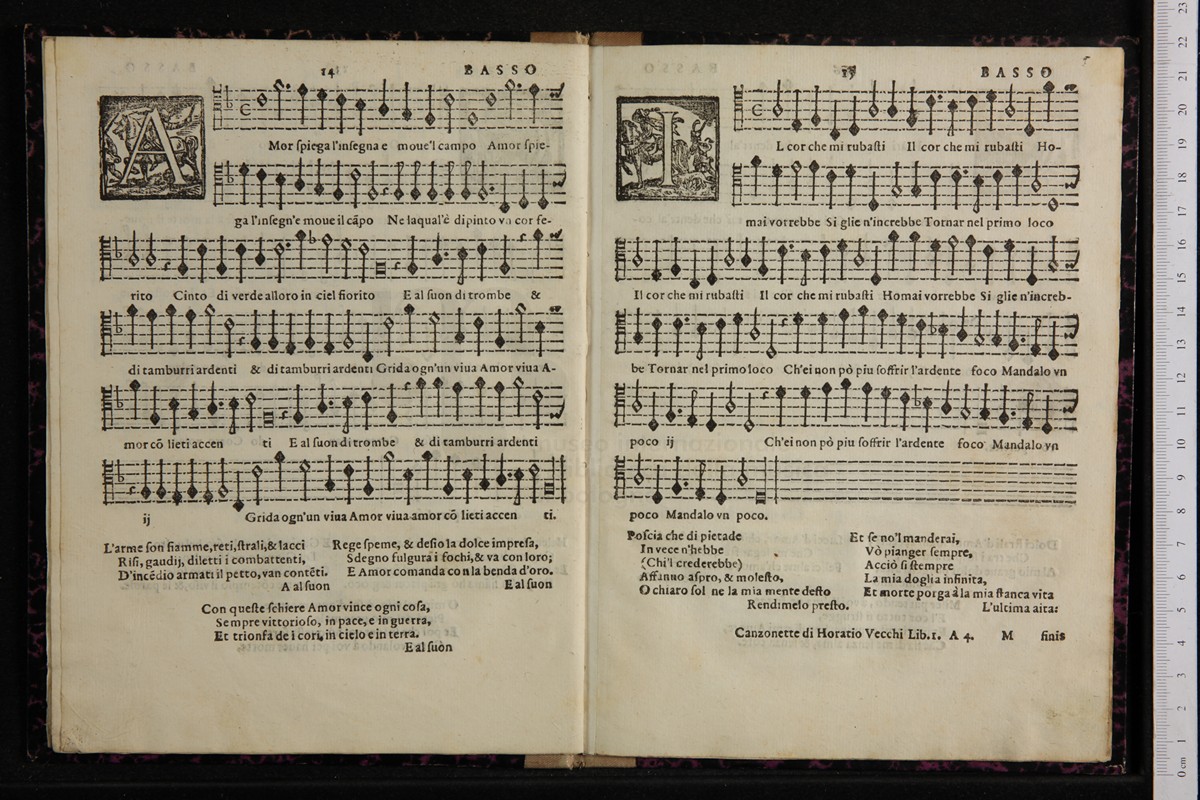 14 BASSO
A
Mor spiega l'insegna e moue'l campo Amor spie-
ga l'insegn'e moue il cãpo Ne laqual'è dipinto vn cor fe-
rito Cinto di verde alloro in ciel fiorito E al suon di trombe &
di tamburri ardenti & di tamburri ardenti Grida ogn'un viua Amor viua A-
mor cõ lieti accen ti E al suon di trombe & di tamburri ardenti
ij Grida ogn'un viua Amor viua amor cõ lieti accen ti.
L'arme son fiamme, reti, strali, & lacci
Risi, gaudij, diletti i combattenti,
D'incẽdio armati il petto, van contẽti.
A al suon
Rege speme, & desio la dolce impresa,
Sdegno fulgura i fochi, & va con loro;
E Amor comanda con la benda d'oro.
E al suon
Con queste schiere Amor vince ogni cosa,
Sempre vittorioso, in pace, e in guerra,
Et trionfa de i cori, in cielo e in terra.
E al suòn
15 BASSO
I
L cor che mi rubasti Il cor che mi rubasti Ho-
mai vorrebbe Si glie n'increbbe Tornar nel primo loco
Il cor che mi rubasti Il cor che mi rubasti Homai vorrebbe Si glie n'increb-
be Tornar nel primo loco Ch'ei non pò piu soffrir l'ardente foco Mandalo vn
poco ij Ch'ei non pò piu soffrir l'ardente foco Mandalo vn
poco Mandalo vn poco.
Poscia che di pietade
In vece n'hebbe
(Chi'l crederebbe)
Affanno aspro, & molesto,
O chiaro sol ne la mia mente desto
Rendimelo presto.
Et se no'l manderai,
Vò pianger sempre,
Acciò si stempre
La mia doglia infinita,
Et morte porga à la mia stanca vita
L'ultima aita:
Canzonette di Horatio Vecchi Lib. 1. A 4. M finis
0 cm 1 2 3 4 5 6 7 8 9 10 11 12 13 14 15 16 17 18 19 20 21 22 23